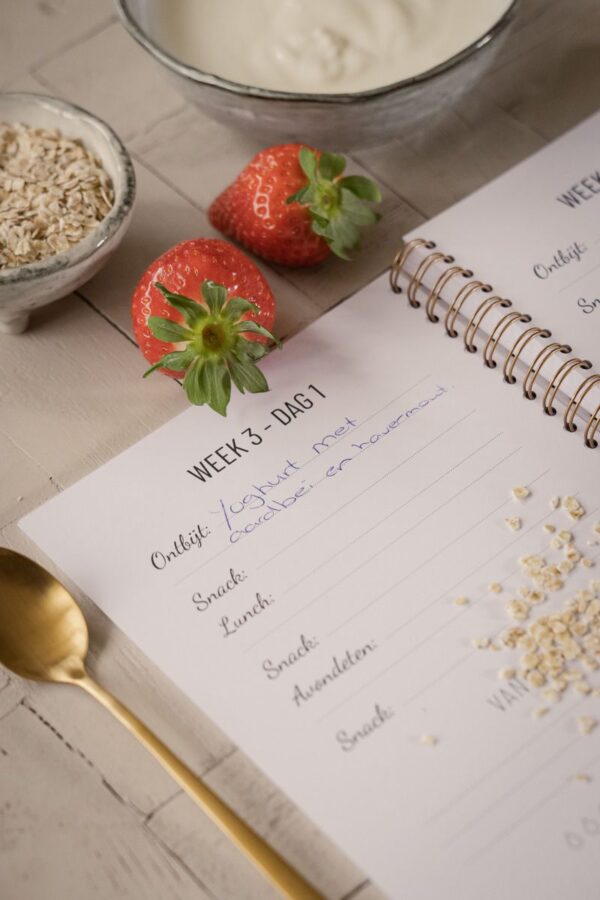 WEEK 3 - DAG 1
Ontbijt: Yoghurt met
aardbei en havermout.
Snack:
Lunch:
Snack:
Avondeten:
Snack:
VAN
WEEK
Ontbijt: